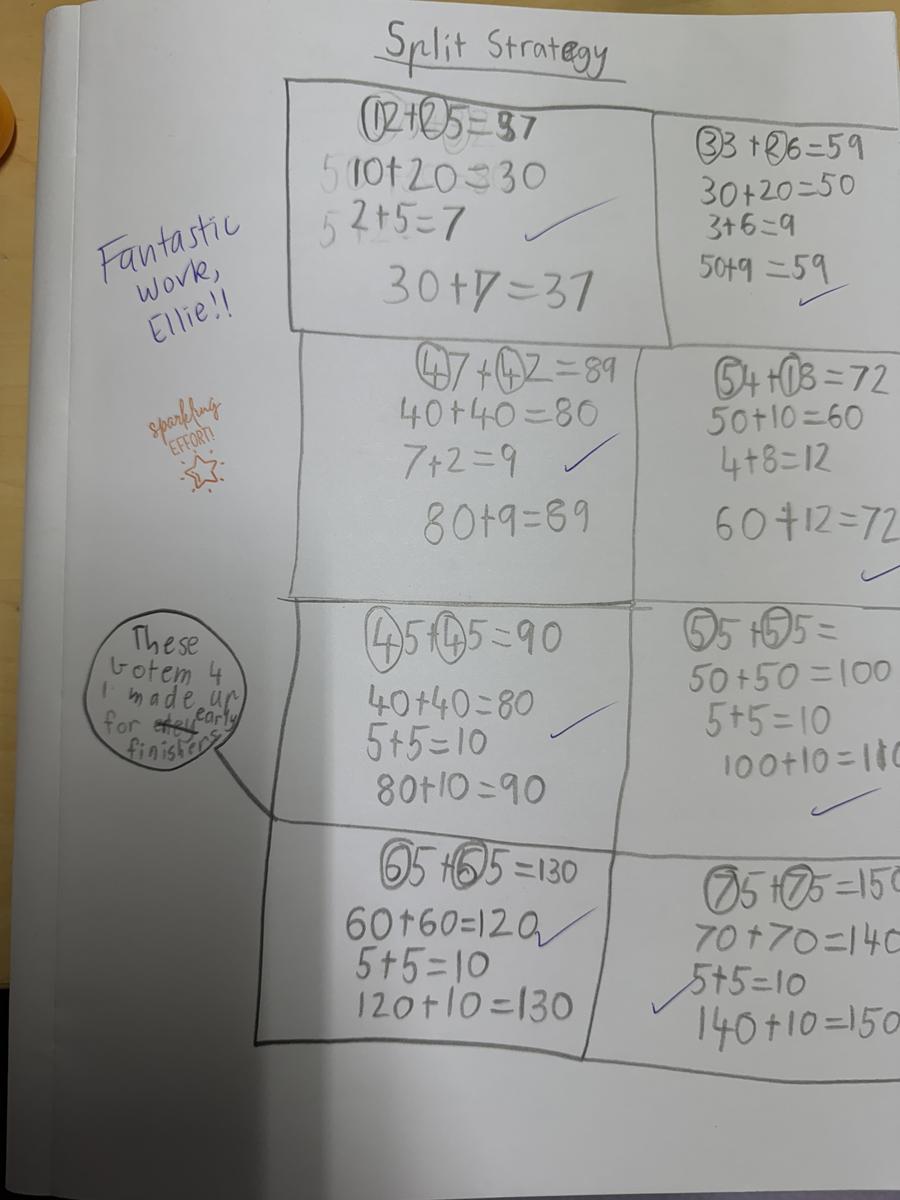 Split Strategy
12+25=37
10+20=30
2+5=7
30+7=37
33+26=59
30+20=50
3+6=9
50+9=59
Fantastic
work,
Ellie!!
47+42=89
40+40=80
7+2=9
80+9=89
54+18=72
50+10=60
4+8=12
60+12=72
sparkling
EFFORT!
45+45=90
40+40=80
5+5=10
80+10=90
55+55=
50+50=100
5+5=10
100+10=110
These
botem 4
I made up
for early
finishers
65+65=130
60+60=120
5+5=10
120+10=130
75+75=150
70+70=140
5+5=10
140+10=150